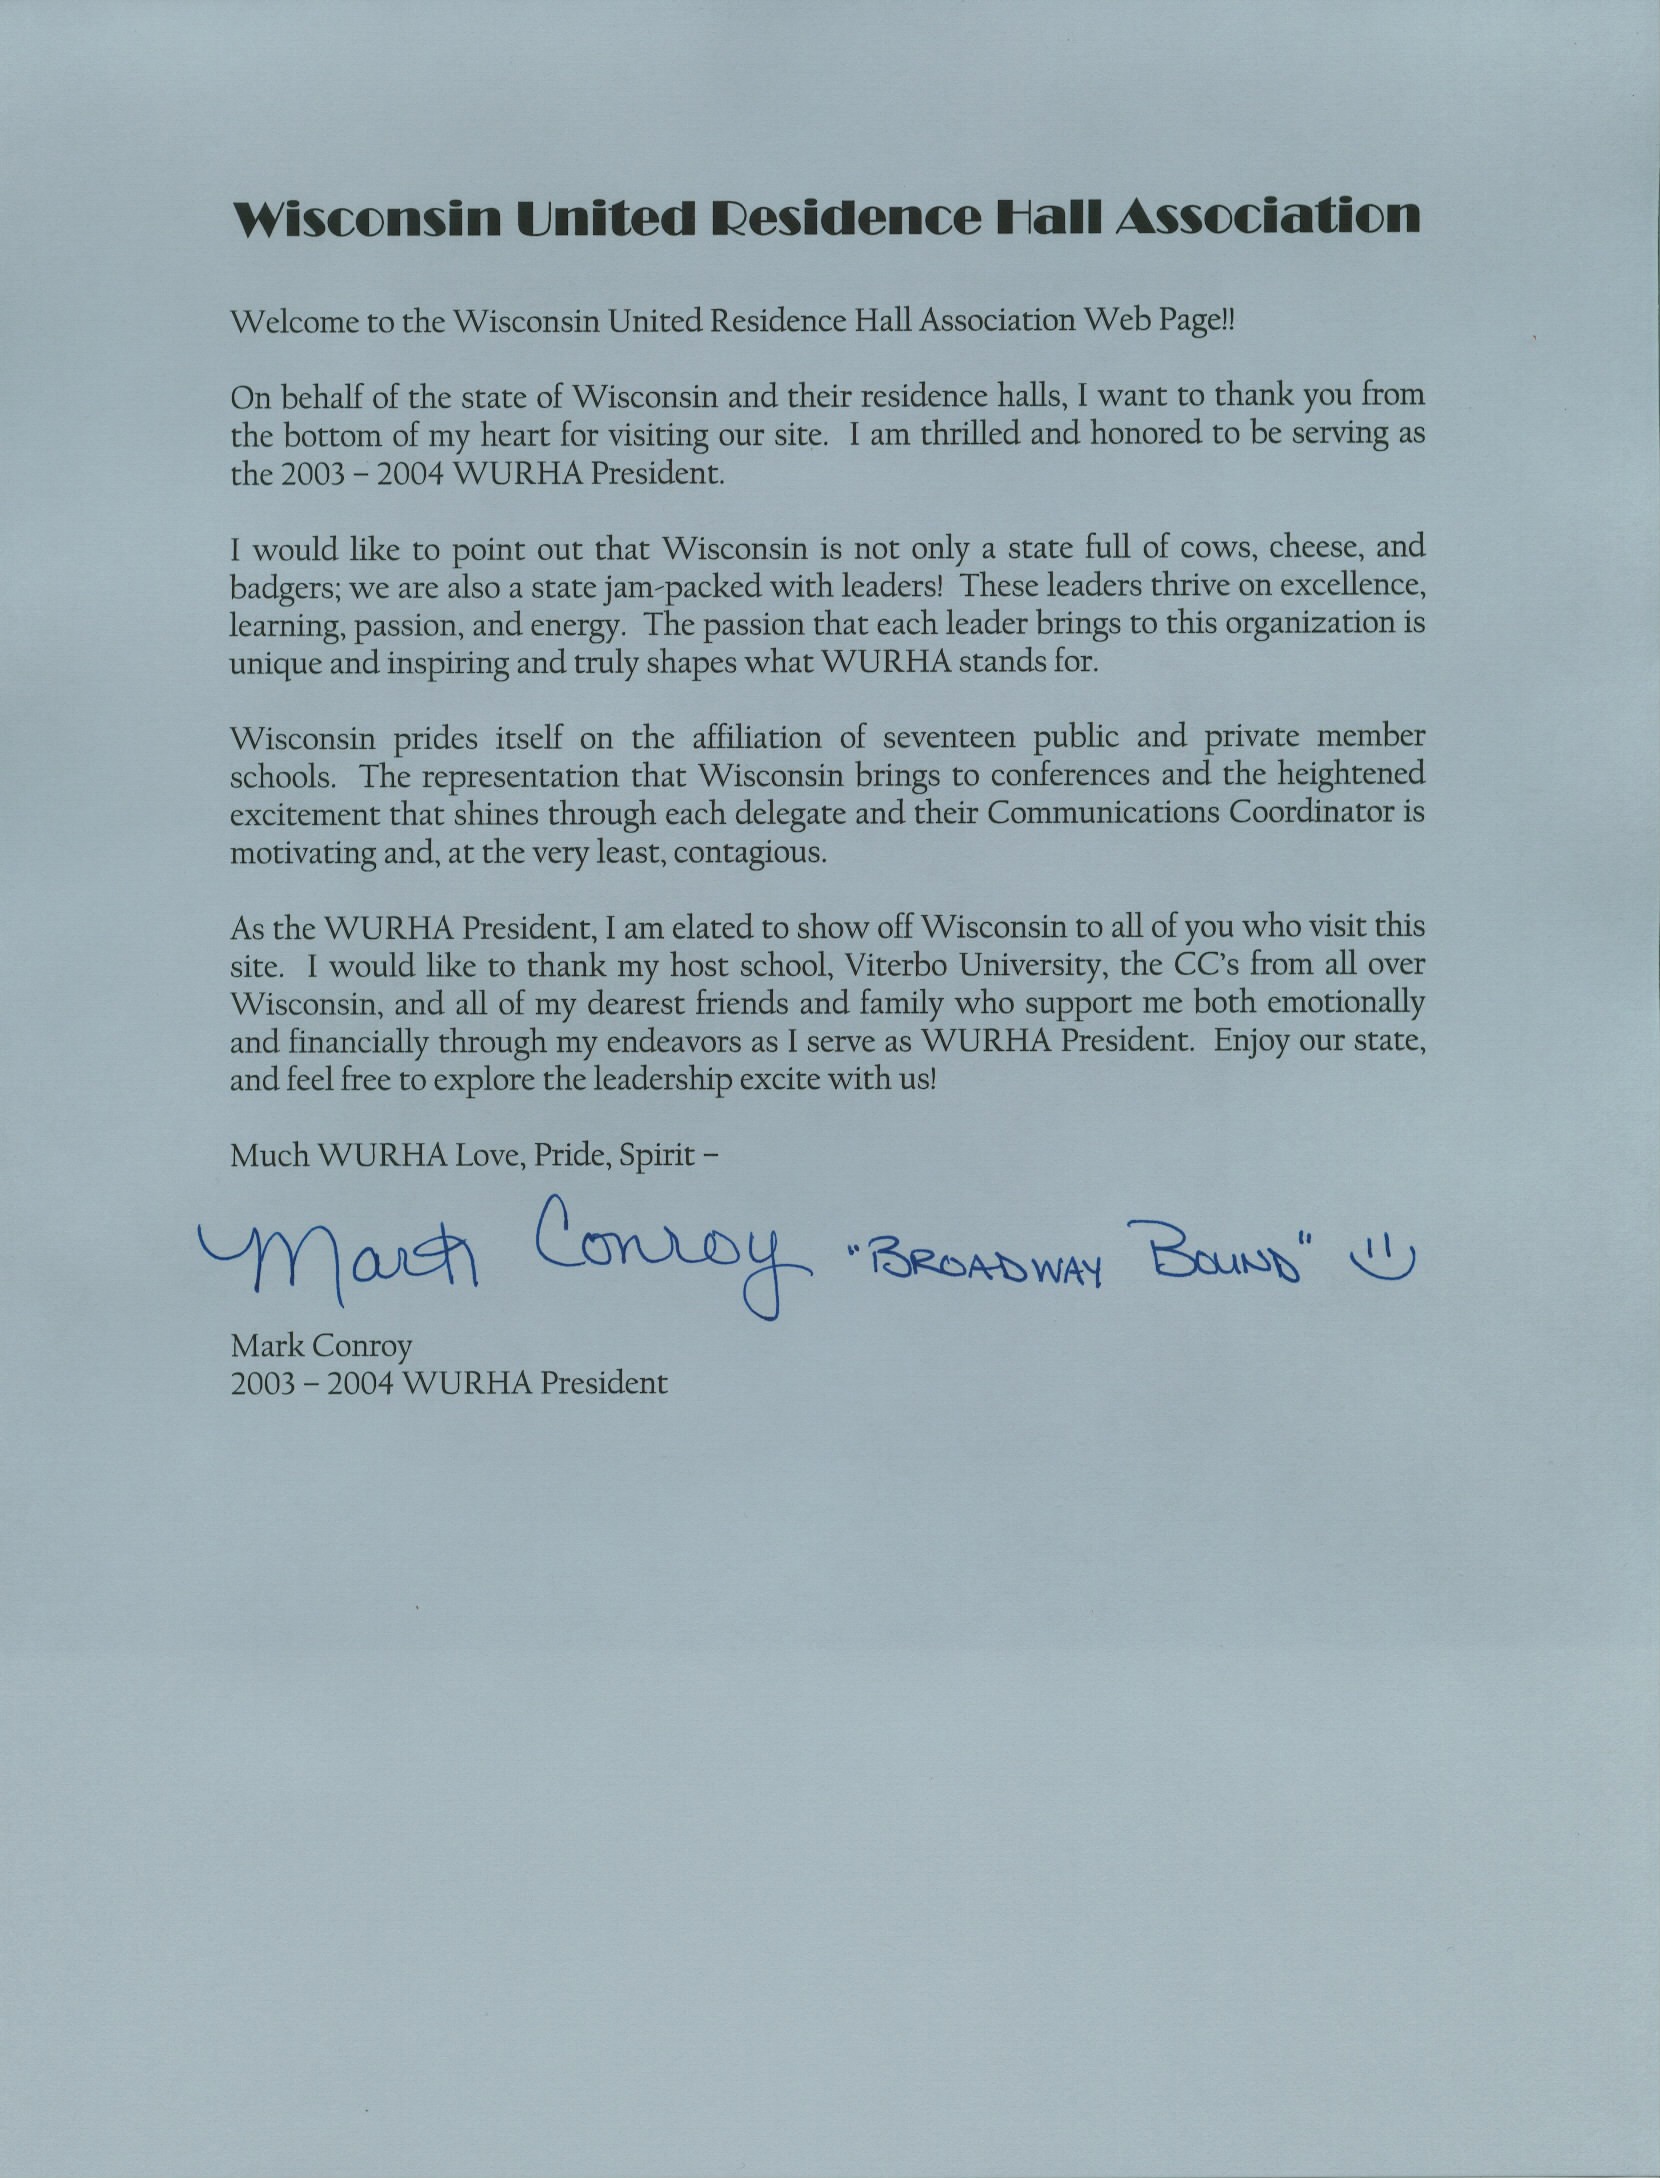 Wisconsin United Residence Hall Association
Welcome to the Wisconsin United Residence Hall Association Web Page!!
On behalf of the state of Wisconsin and their residence halls, I want to thank you from
the bottom of my heart for visiting our site. I am thrilled and honored to be serving as
the 2003 – 2004 WURHA President.
I would like to point out that Wisconsin is not only a state full of cows, cheese, and
badgers; we are also a state jam-packed with leaders! These leaders thrive on excellence,
learning, passion, and energy. The passion that each leader brings to this organization is
unique and inspiring and truly shapes what WURHA stands for.
Wisconsin prides itself on the affiliation of seventeen public and private member
schools. The representation that Wisconsin brings to conferences and the heightened
excitement that shines through each delegate and their Communications Coordinator is
motivating and, at the very least, contagious.
As the WURHA President, I am elated to show off Wisconsin to all of you who visit this
site. I would like to thank my host school, Viterbo University, the CC's from all over
Wisconsin, and all of my dearest friends and family who support me both emotionally
and financially through my endeavors as I serve as WURHA President. Enjoy our state,
and feel free to explore the leadership excite with us!
Much WURHA Love, Pride, Spirit –
Mark Conroy "BROADWAY BOUND"
Mark Conroy
2003 – 2004 WURHA President